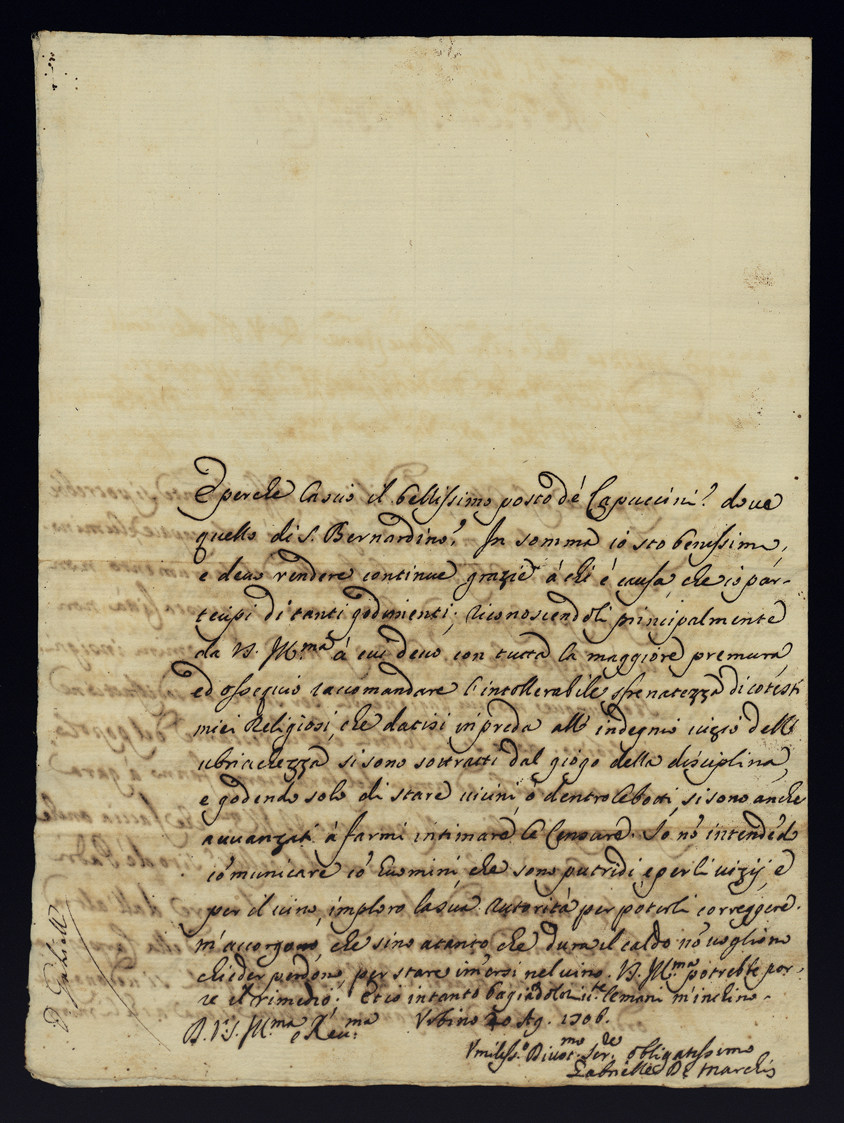 E perche lascio il bellissimo posto dè Capuccini? doue
quello di S. Bernardino? In somma io sto benissimo,
e deuo rendere continue grazie à chi è causa, che io par-
tecipi di tanti godimenti; riconoscendoli principalmente
da V.S. Ill.ma à cui deuo con tutta la maggiore premura,
ed ossequio raccomandare l'intollerabile sfrenatezza di cotesti
miei Religiosi, che datisi in preda all' indegno uizio dell'
ubriachezza si sono sottratti dal giogo della disciplina,
e godendo solo di stare uicini ò dentro le botti, si sono anche
auuanzati à farmi intimare le Censure. Io nõ intendẽdo
cõmunicare cõ huomini, che sono putridi e per li uizij e
per il uino, imploro la sua Autorità per poterli correggere.
m'accorgono, che sino a tanto che dura il caldo nõ uogliono
chieder perdono, per stare imersi nel uino. V.S. Ill.ma potrebbe por-
re il rimedio; et io intanto bagiãdole le mani m'inchino.
D. V.S. Ill.ma e Reu.ma Vrbino 20 Ag. 1706.
Vmiliss.o Diuot.mo Ser.re obligatissimo
Gabrielle De Marchis